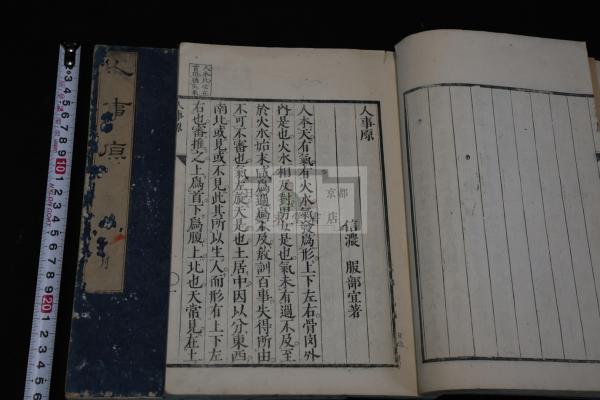 人事原
信濃 服部宜著
人本天有氣有火水氣發爲形上下左右骨肉外
內是也火水相反對男女是也氣末有過不及至
於火水始末或爲過爲不及故訓百事失得所由
不可不審也氣左旋天是也土居中因以分東西
南北或見或不見此其所以生人而形有上下左
右也審推之上爲首下爲腹上北也天常見在上
人事原